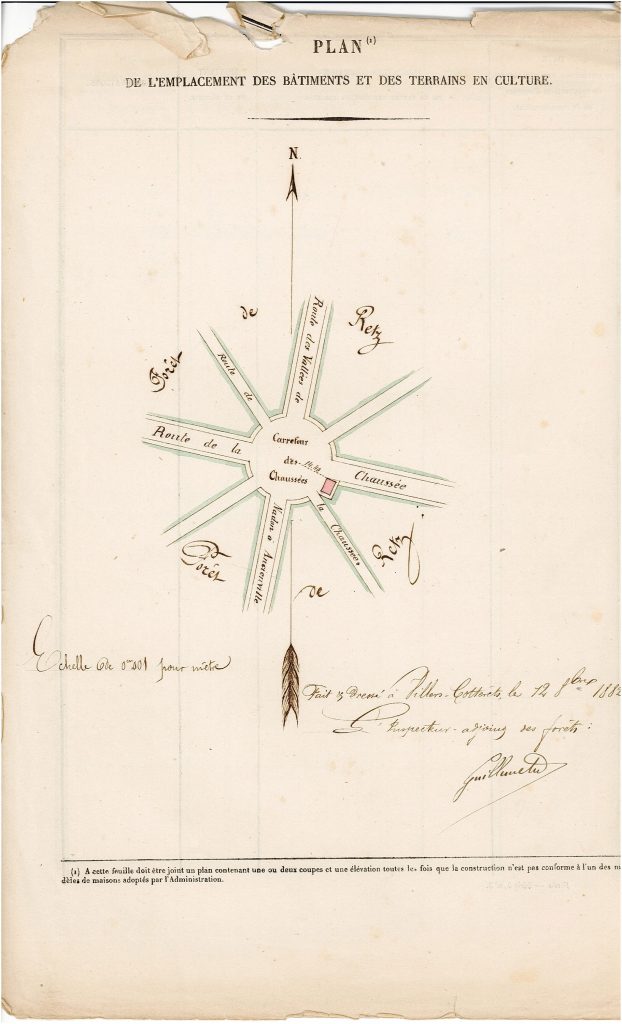 PLAN (1)
DE L'EMPLACEMENT DES BÂTIMENTS ET DES TERRAINS EN CULTURE.
N.
de
Retz
Forêt
Route de
Route des Vallées de
Route de la
Carrefour
des
Chaussées
Chaussée
la Chaussée
Nadon à Ancienville
Forêt
de
Retz
Echelle de 0m001 pour mètre
Fait & Dressé à Villers-Cotterêts, le 12 8bre 1882
L'Inspecteur-adjoint des forêts:
(1) A cette feuille doit être joint un plan contenant une ou deux coupes et une élévation toutes les fois que la construction n'est pas conforme à l'un des m
dèles de maisons adoptés par l'Administration.